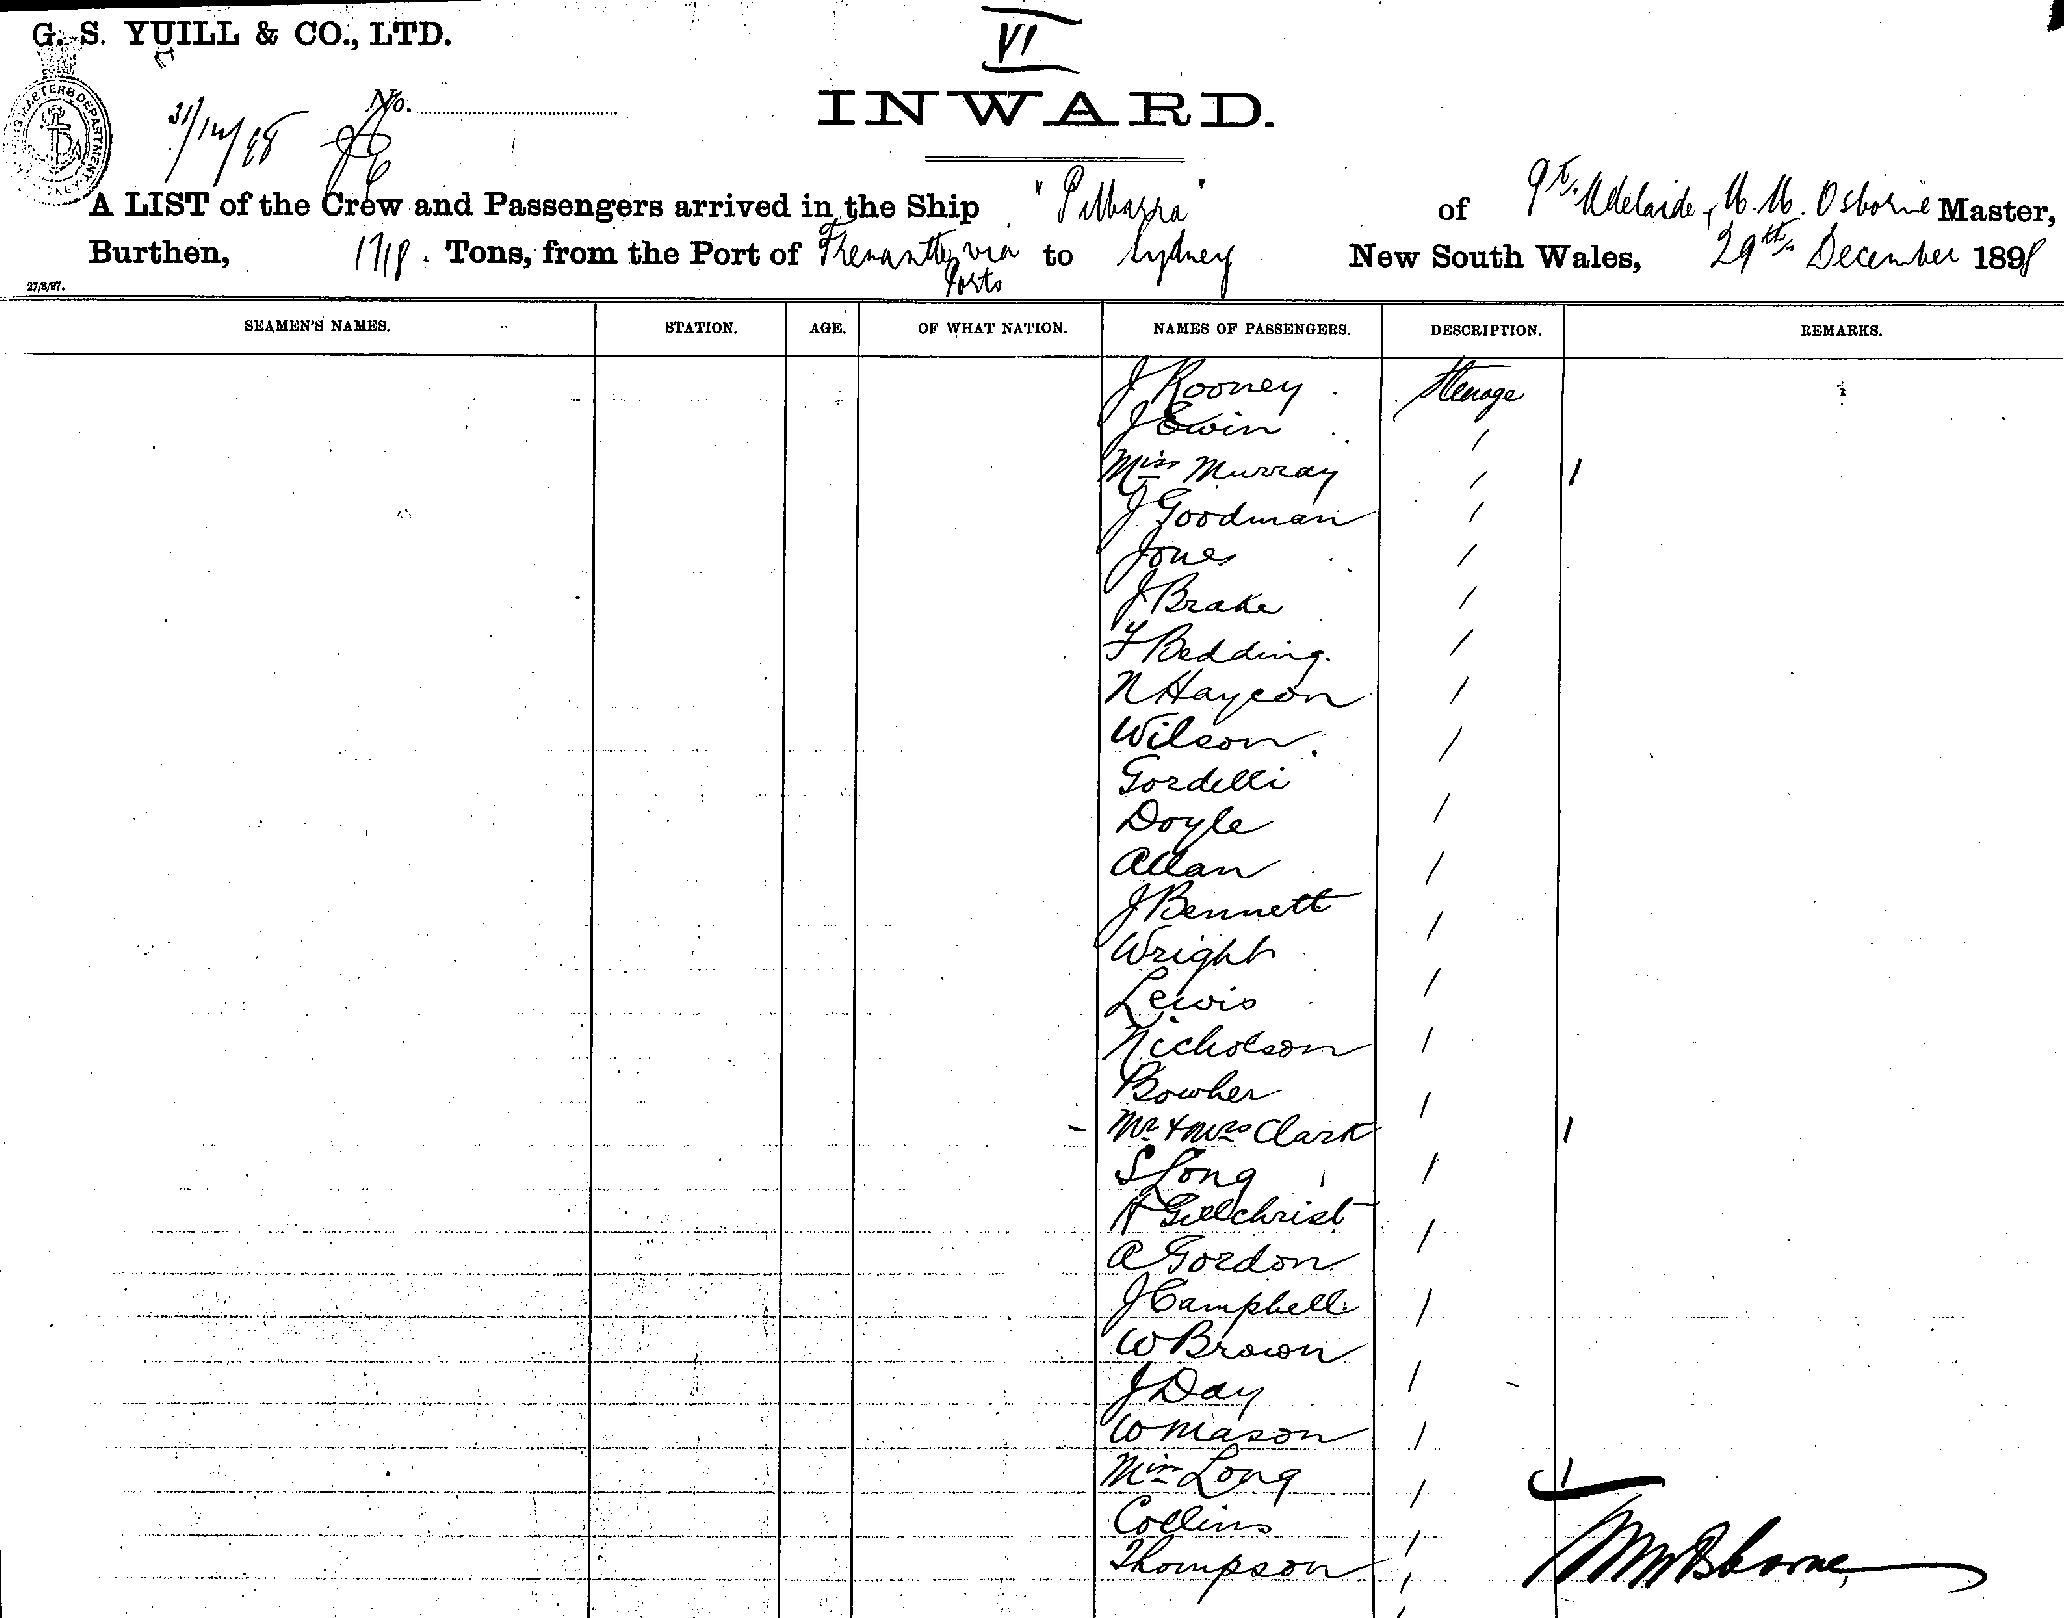 G. S. YUILL & CO., LTD.
VI
31/12/98
No.
INWARD.
A LIST of the Crew and Passengers arrived in the Ship "Pilbarra" of Pt. Adelaide, W. M. Osborne Master,
Burthen, 1718. Tons, from the Port of Fremantle via Ports to Sydney New South Wales, 29th December 1898
27/8/97.
SEAMEN'S NAMES. STATION. AGE. OF WHAT NATION. NAMES OF PASSENGERS. DESCRIPTION. REMARKS.
J Rooney Steerage
J Ewin /
Miss Murray / 1
J Goodman /
Jones /
J Brake /
F Bedding. /
N Haycon /
Wilson. /
Gordelli
Doyle /
Allan /
J Bennett /
Wright
Lewis /
Nicholson /
Bowher /
Mr & Mrs Clark 1
S Long /
A Gillchrist /
A Gordon
J Campbell /
W Brown
J Day /
W Mason /
Miss Long / 1
Collins /
Thompson /
W M Osborne